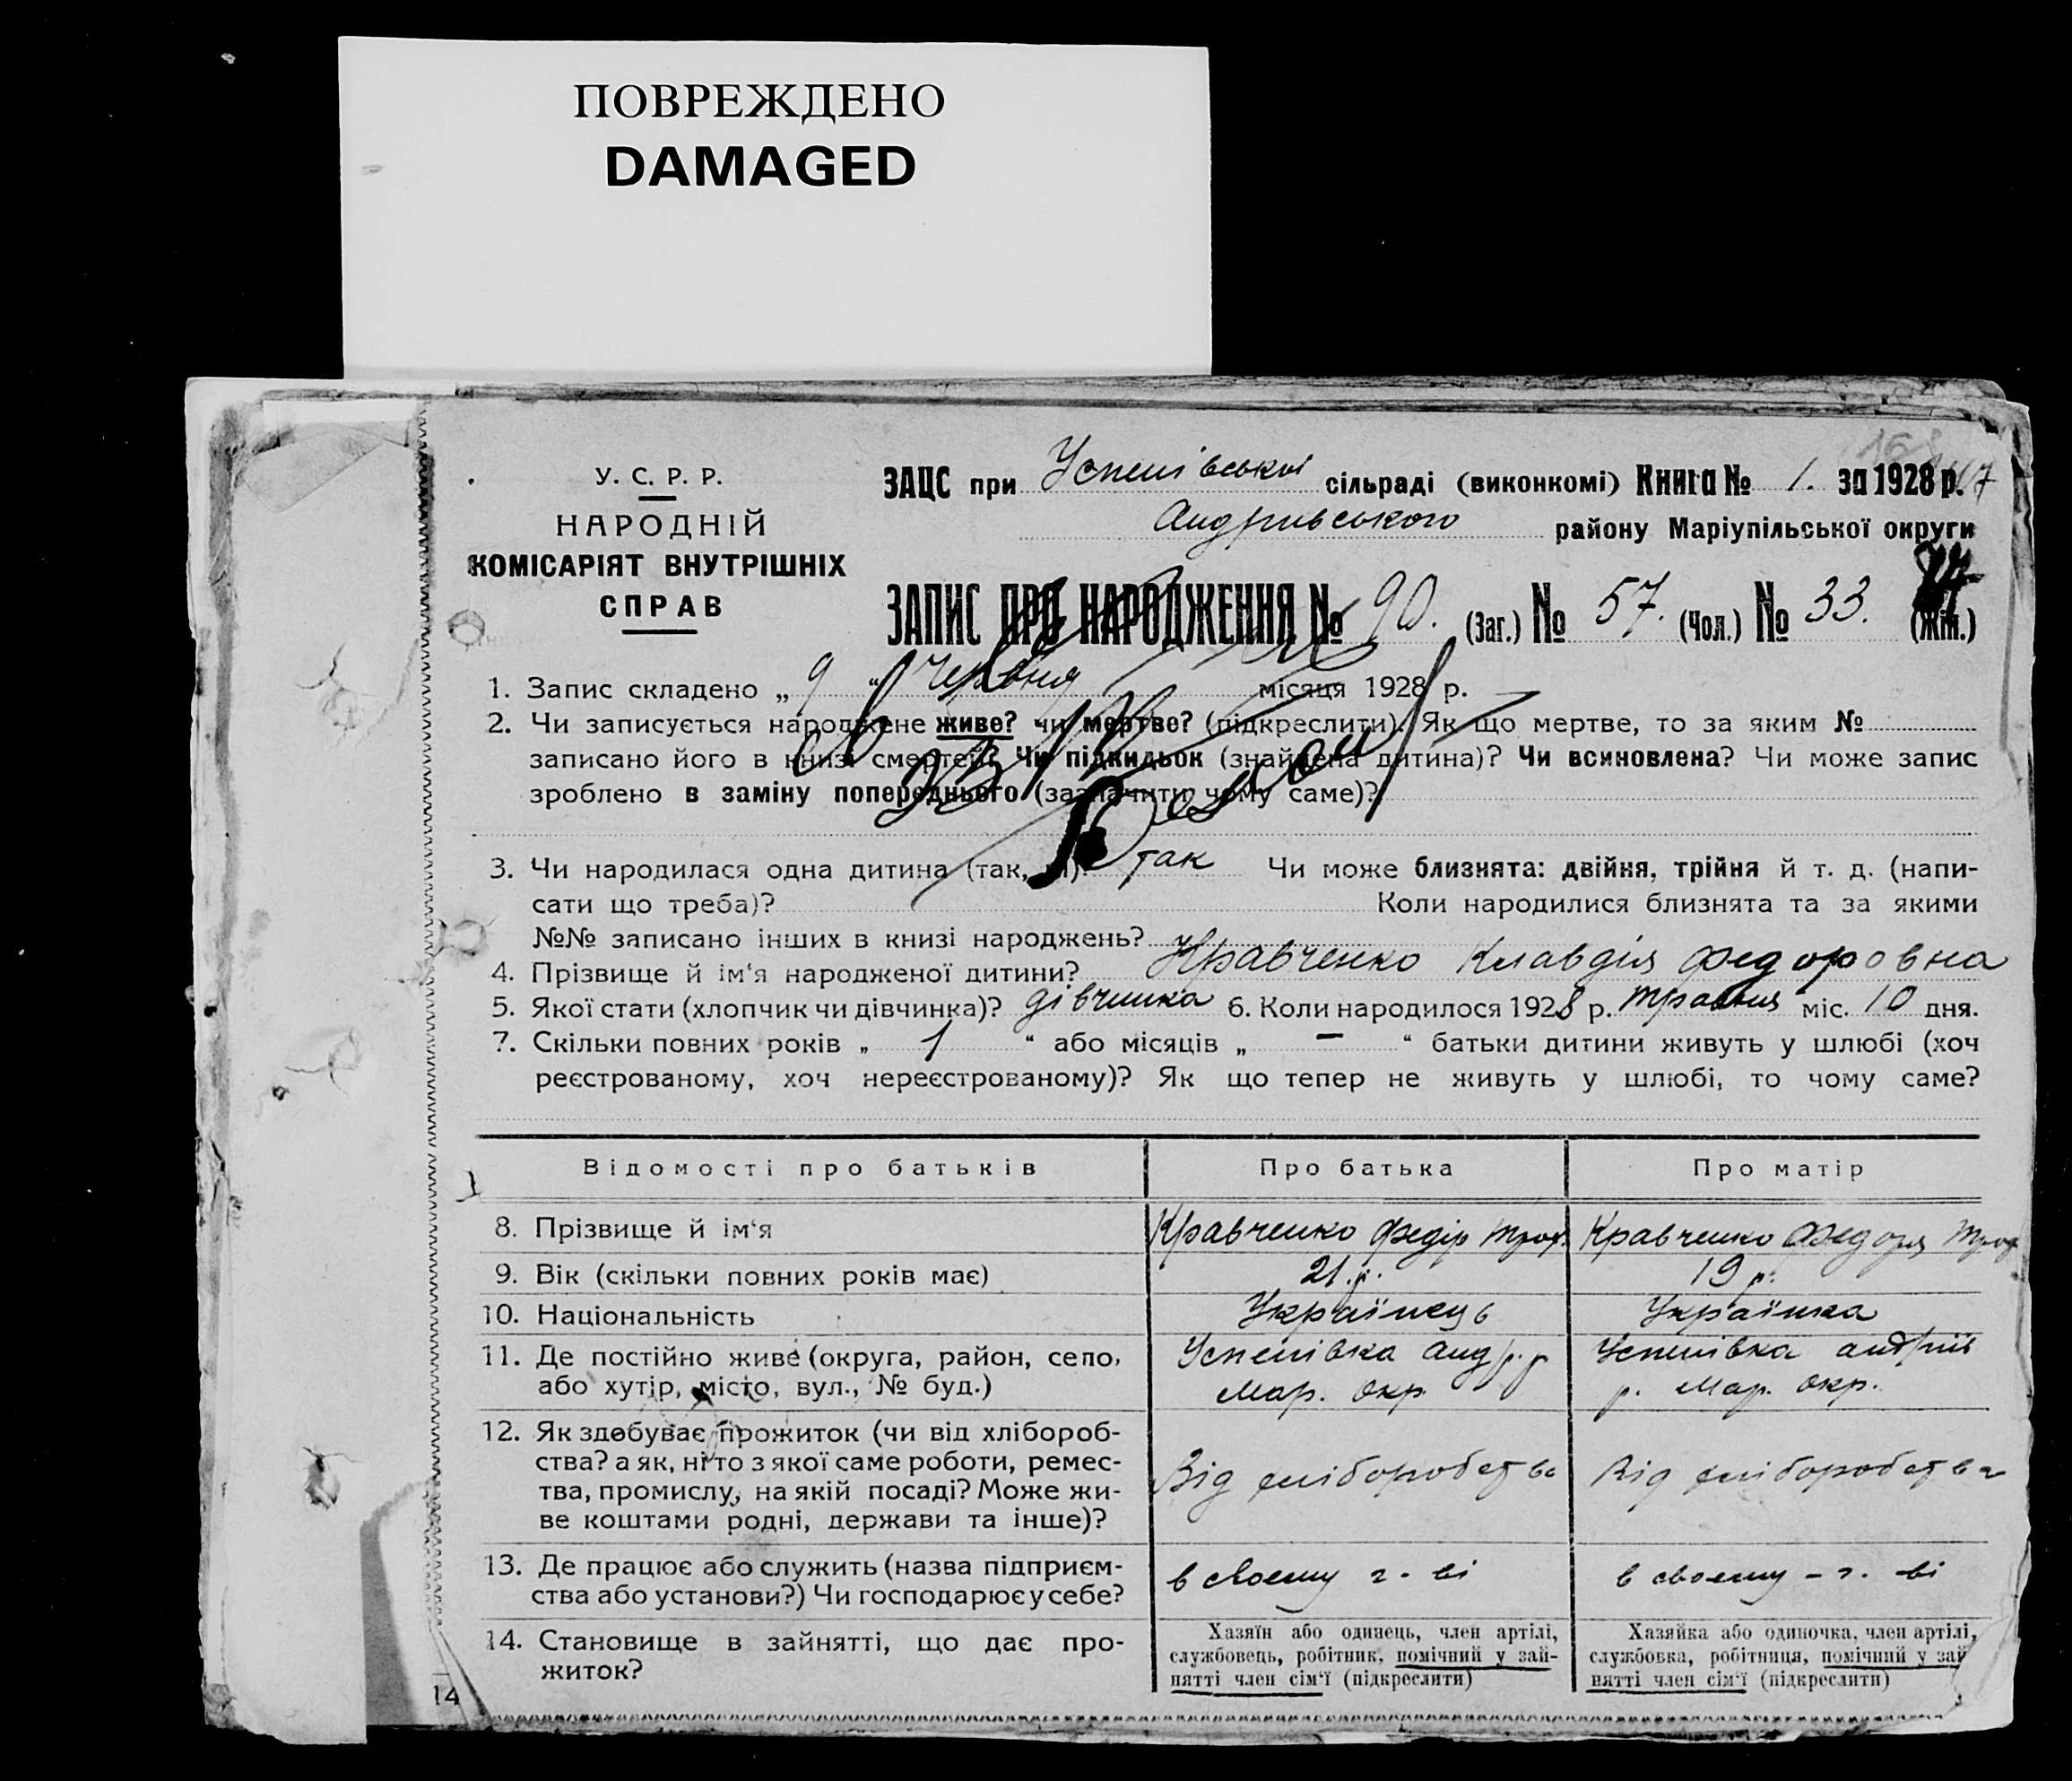 ПОВРЕЖДЕНО
DAMAGED
У. С. Р. Р.
НАРОДНІЙ
КОМІСАРІЯТ ВНУТРІШНІХ
СПРАВ
ЗАЦС при Успенівській сільраді (виконкомі) Книга № 1. за 1928 р.
Андріївського району Маріупільської округи
ЗАПИС ПРО НАРОДЖЕННЯ № 90. (Заг.) № 57. (Чол.) № 33. (Жін.)
1. Запис складено „ 9 “ червня місяця 1928 р.
2. Чи записується народжене живе? чи мертве? (підкреслити). Як що мертве, то за яким №
записано його в книзі смертей? Чи підкидьок (знайдена дитина)? Чи всиновлена? Чи може запис
зроблено в заміну попереднього (зазначити чому саме)?
3. Чи народилася одна дитина (так, ні)? так Чи може близнята: двійня, трійня й т. д. (напи-
сати що треба)? Коли народилися близнята та за якими
№№ записано інших в книзі народжень?
4. Прізвище й ім‘я народженої дитини? Кравченко Клавдія Федоровна
5. Якої стати (хлопчик чи дівчинка)? дівчинка 6. Коли народилося 1928 р. травня міс. 10 дня.
7. Скільки повних років „ 1 “ або місяців „ — “ батьки дитини живуть у шлюбі (хоч
реєстрованому, хоч нереєстрованому)? Як що тепер не живуть у шлюбі, то чому саме?
Відомості про батьків Про батька Про матір
8. Прізвище й ім‘я Кравченко Федір Троф. Кравченко Федора Троф
9. Вік (скільки повних років має) 21 р. 19 р.
10. Національність Українець Українка
11. Де постійно живе (округа, район, село, Успенівка Андр. р Успенівка андрив
або хутір, місто, вул., № буд.) Мар. окр р. Мар. окр.
12. Як здобуває прожиток (чи від хлібороб-
ства? а як, ні то з якої саме роботи, ремес- Від хліборобства Від хліборобства
тва, промислу, на якій посаді? Може жи-
ве коштами родні, держави та інше)?
13. Де працює або служить (назва підприєм- в своєму г-ві в своєму г-ві
ства або установи?) Чи господарює у себе?
14. Становище в зайнятті, що дає про- Хазяїн або одинець, член артілі, Хазяйка або одиночка, член артілі,
житок? службовець, робітник, помічний у зай- службовка, робітниця, помічний у зай
нятті член сім‘ї (підкреслити) нятті член сім‘ї (підкреслити)
14